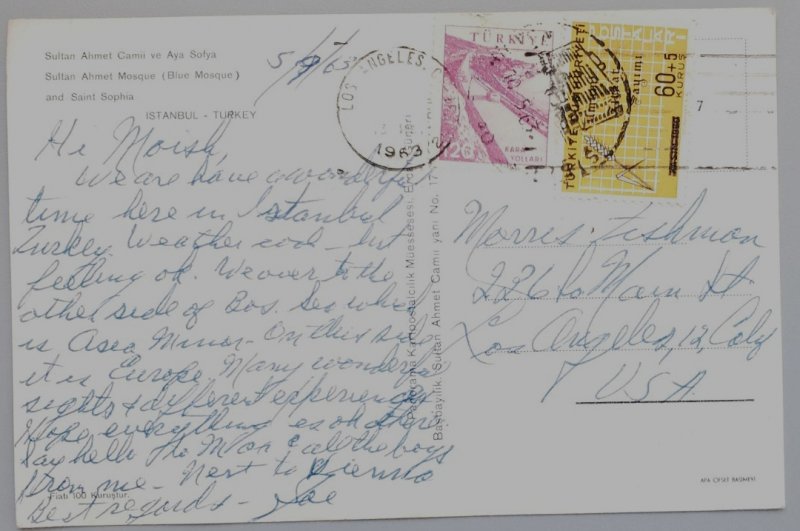 Sultan Ahmet Camii ve Aya Sofya
Sultan Ahmet Mosque (Blue Mosque)
and Saint Sophia
ISTANBUL - TURKEY
Hi Moish,
We are have a wonderful
time here in Istanbul
Turkey. Weather cool - but
feeling ok. We over to the
other side of Bos. Sea which
is Asea Minor - On this side
it is Europe. Many wonderful
sights & different experiences
Hope everything es ok there
Say hello to Mon & all the boys
from me - Next to Vienna
Best regards - Joe
Fiatı 100 Kuruştur.
Panorama Kartpostalcılık Müessesesi
Başbayilik (Sultan Ahmet Camii yanı No. 17
LOS ANGELES
1963
TÜRKİYE
KARA
YOLLARI
TÜRKİYE CUMHURİYETİ
POSTALARI
sayımı
60+5
KURUŞ
7
Morris Fishman
226 So Main St
Los Angeles, 12, Caly
U.S.A.
APA OFSET BASIMEVİ